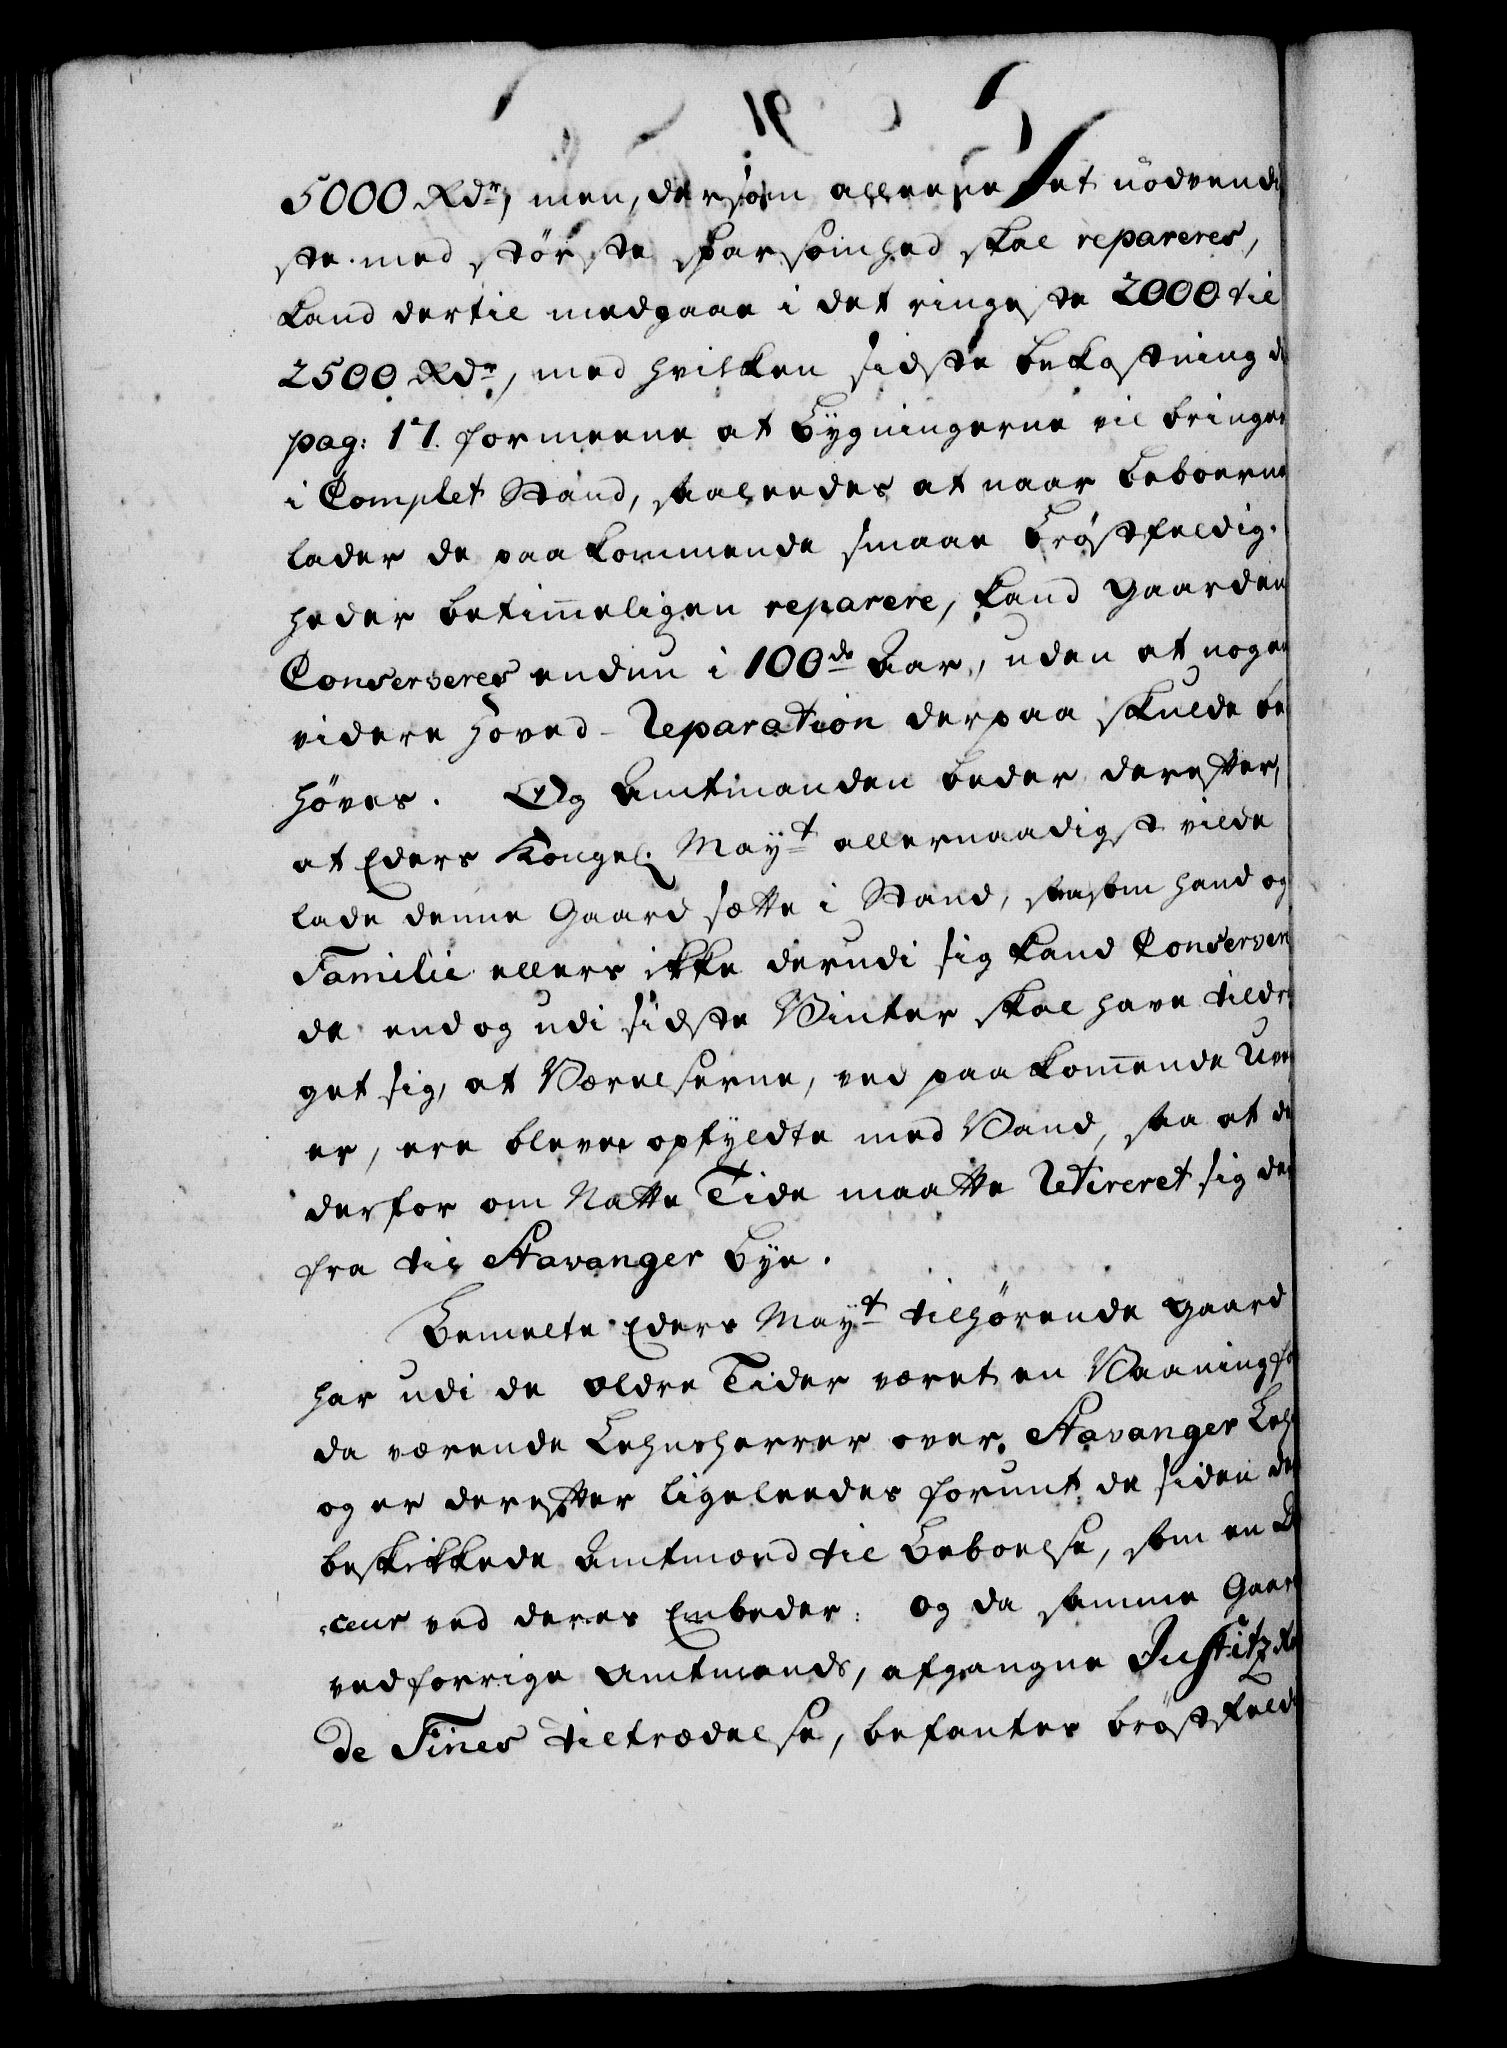 5000 Rdr, men, dersom alleene det nödvendi
ste med störste sparsomhed skal repareres,
kand dertil medgaae i det ringeste 2000 til
2500 Rdr, med hvilken sidste bekostning d
pag: 17. formeene at Bygningerne vil bringes
i Complet Stand, saaleedes at naar beboerne
lader de paakommende smaae Bröstfeldig-
heder betimeligen reparere, kand gaarden
Conserveres endnu i 100de Aar, uden at nogen
videre Hoved-Reparation derpaa skulde be
höves. Og Amtmanden beder derefter,
at Eders Kongel. Mayt allernaadigst vilde
lade denne Gaard sætte i Stand, saasom hand og
Familie ellers ikke derudi sig kand Conservere
de endog udi sidste Vinter skal have tildra
get sig, at Værelserne, ved paakommende Uve
er, ere bleven opfyldte med Vand, saa at de
derfor om Natte Tide maatte Retireret sig der
fra til Stavanger Bye.
Bemelte Eders Mayt tilhörende gaard
har udi de ældre Tider været en Vaaning for
da værende Lehnsherrer over Stavanger Lehn
og er derefter ligeleedes forunt de siden der
beskikkede Amtmænd til Beboelse, som en D
ceur ved deres Embeder: og da samme Gaard
ved forrige Amtmands, afgangne Justitz Ra
de Fines Tiltrædelse, befantes bröstfeldi